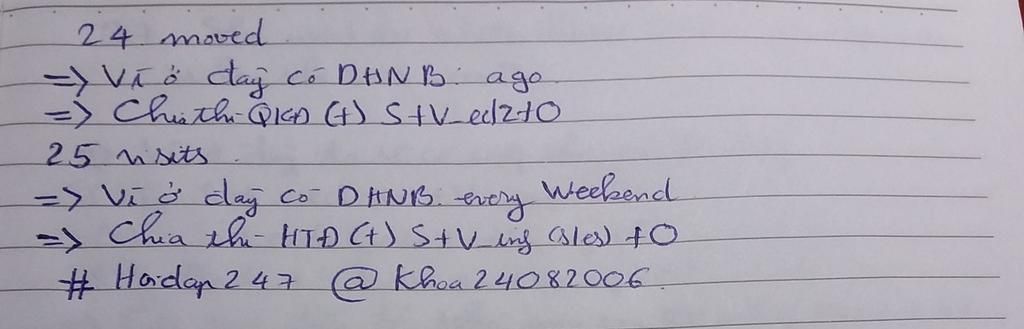 24 moved
=> Vì ở đây có DHNB: ago
=> Chia thì QKĐ (+) S+V_ed/2+O
25 visits.
=> Vì ở đây có DHNB: every Weekend
=> Chia thì HTĐ (+) S+V_inf (s/es) +O
# Hoidap247 @Khoa24082006